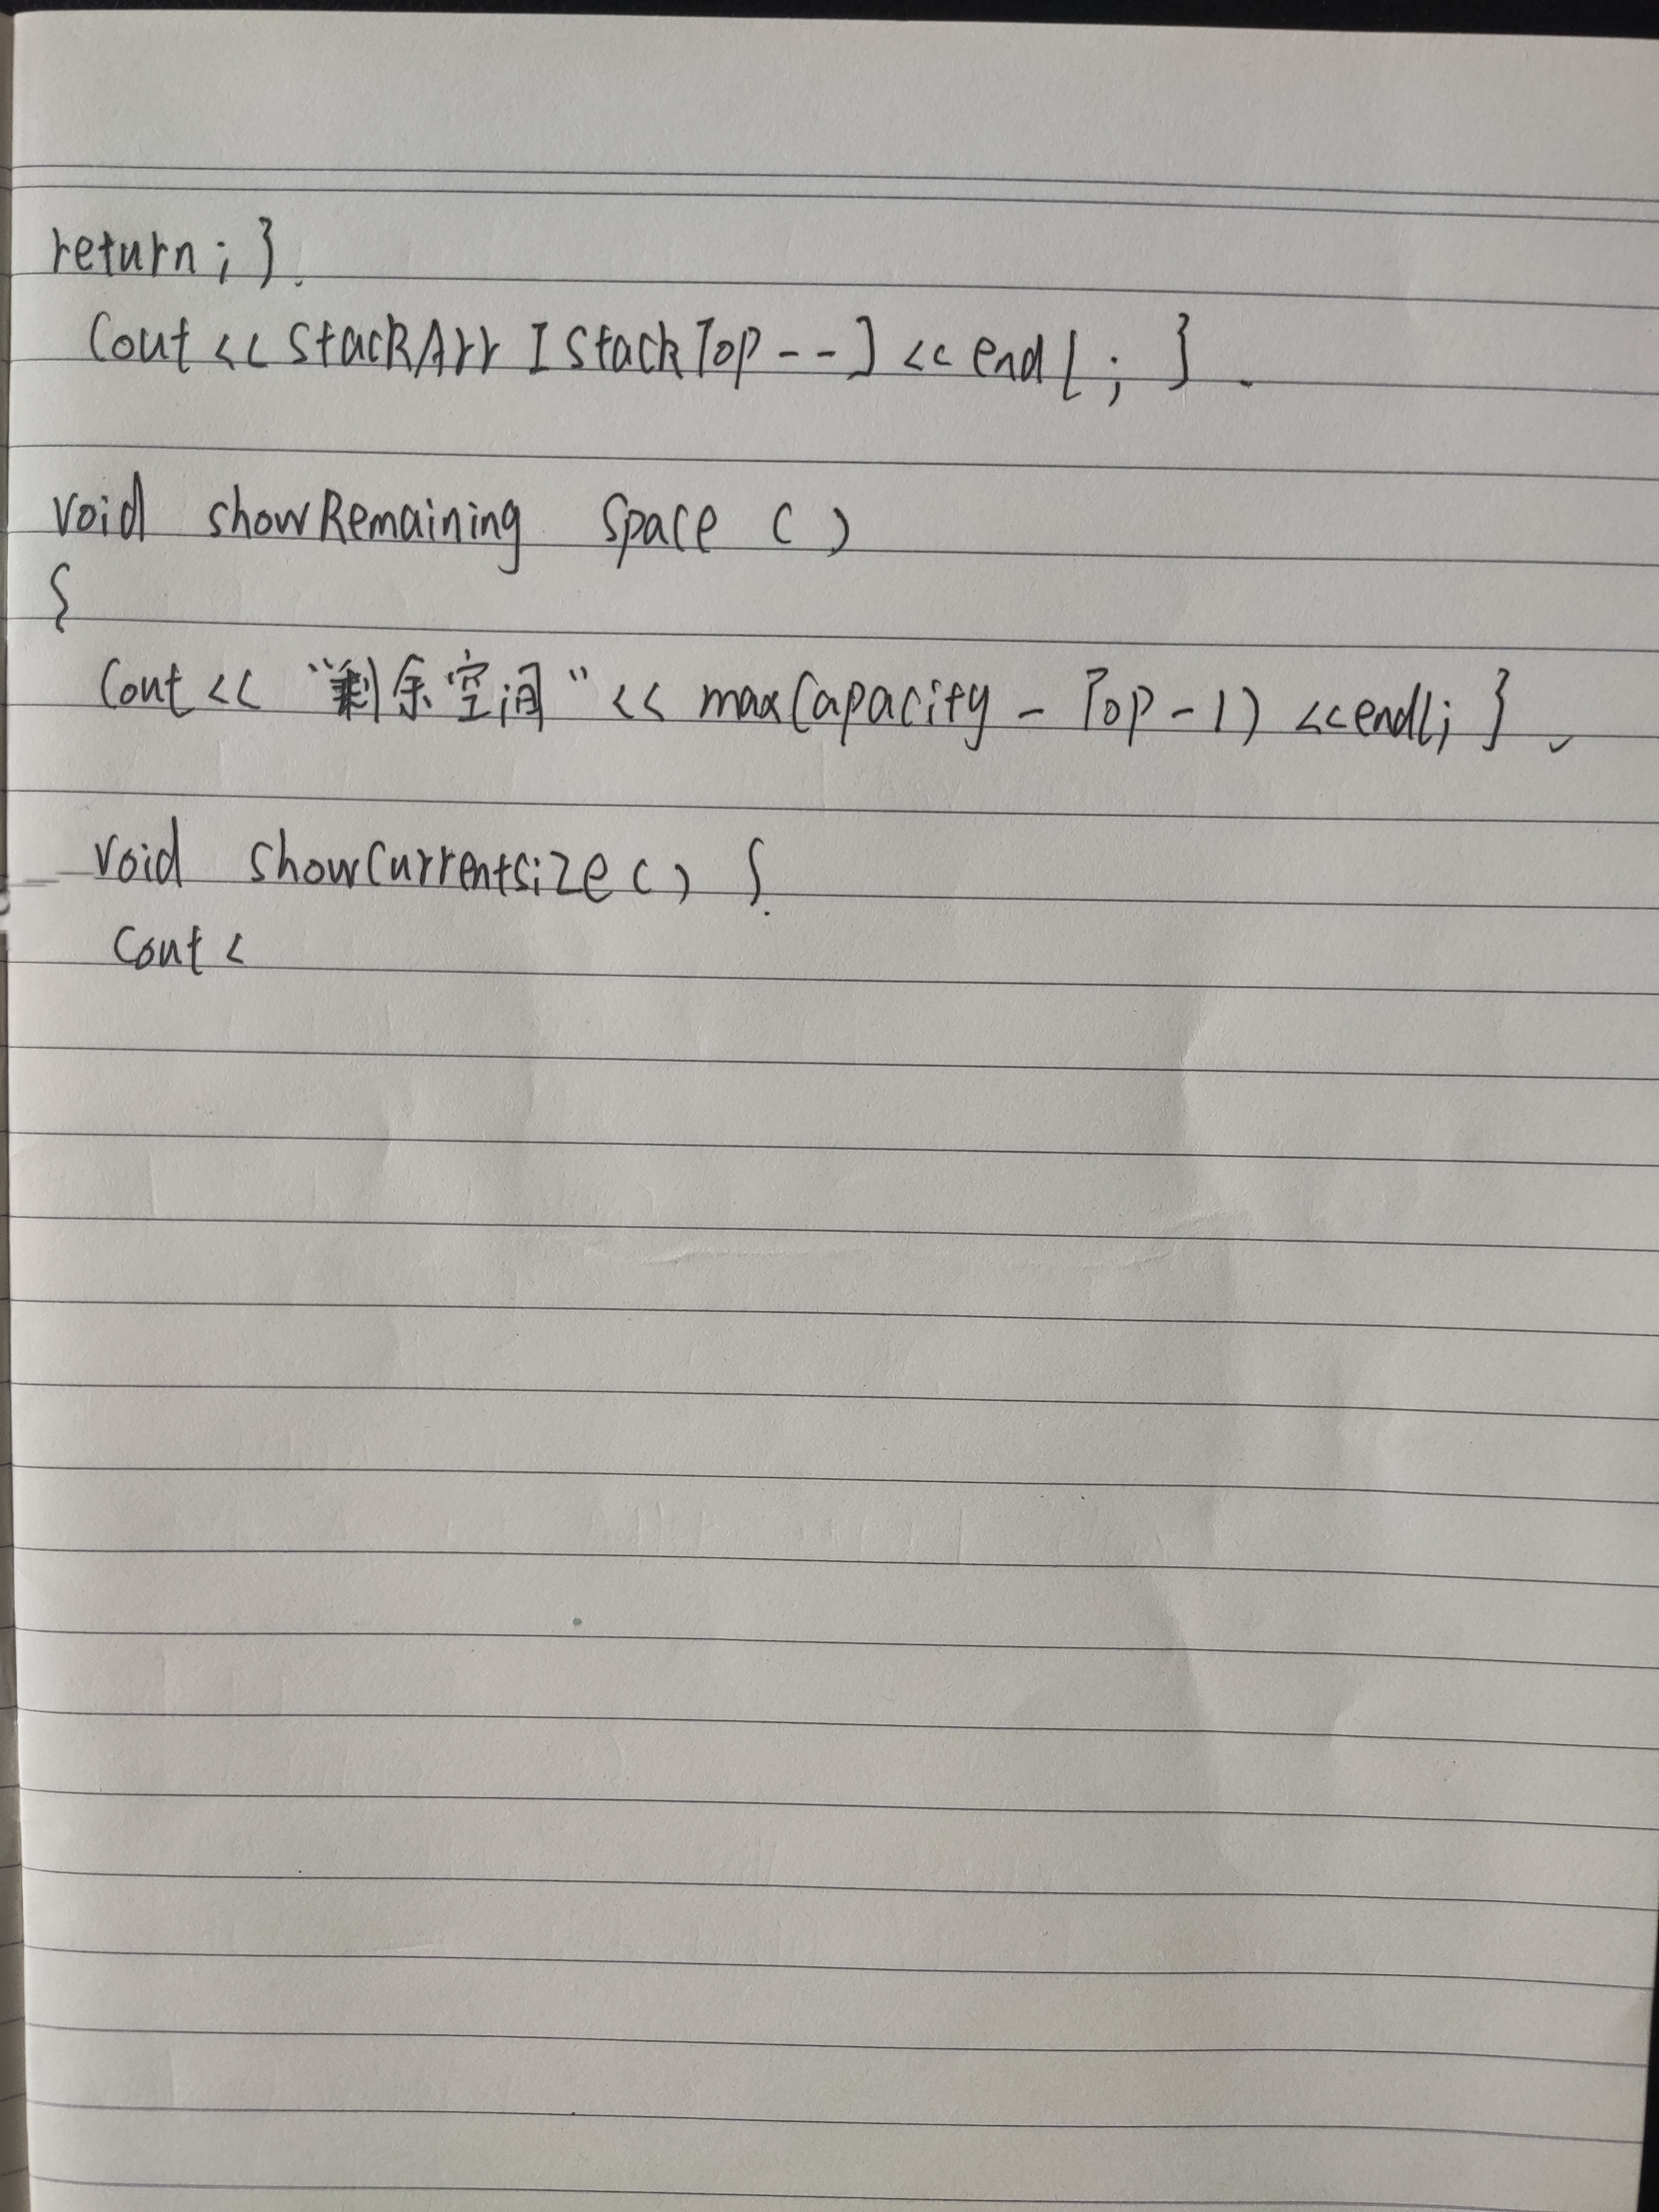 return ; } .
Cout << StackArr [ StackTop - - ] << endl ; } .
void showRemaining Space ( )
{
Cout << "剩余空间" << maxCapacity - Top - 1 ) << endl; } .
void showCurrentsize ( ) { .
Cout <